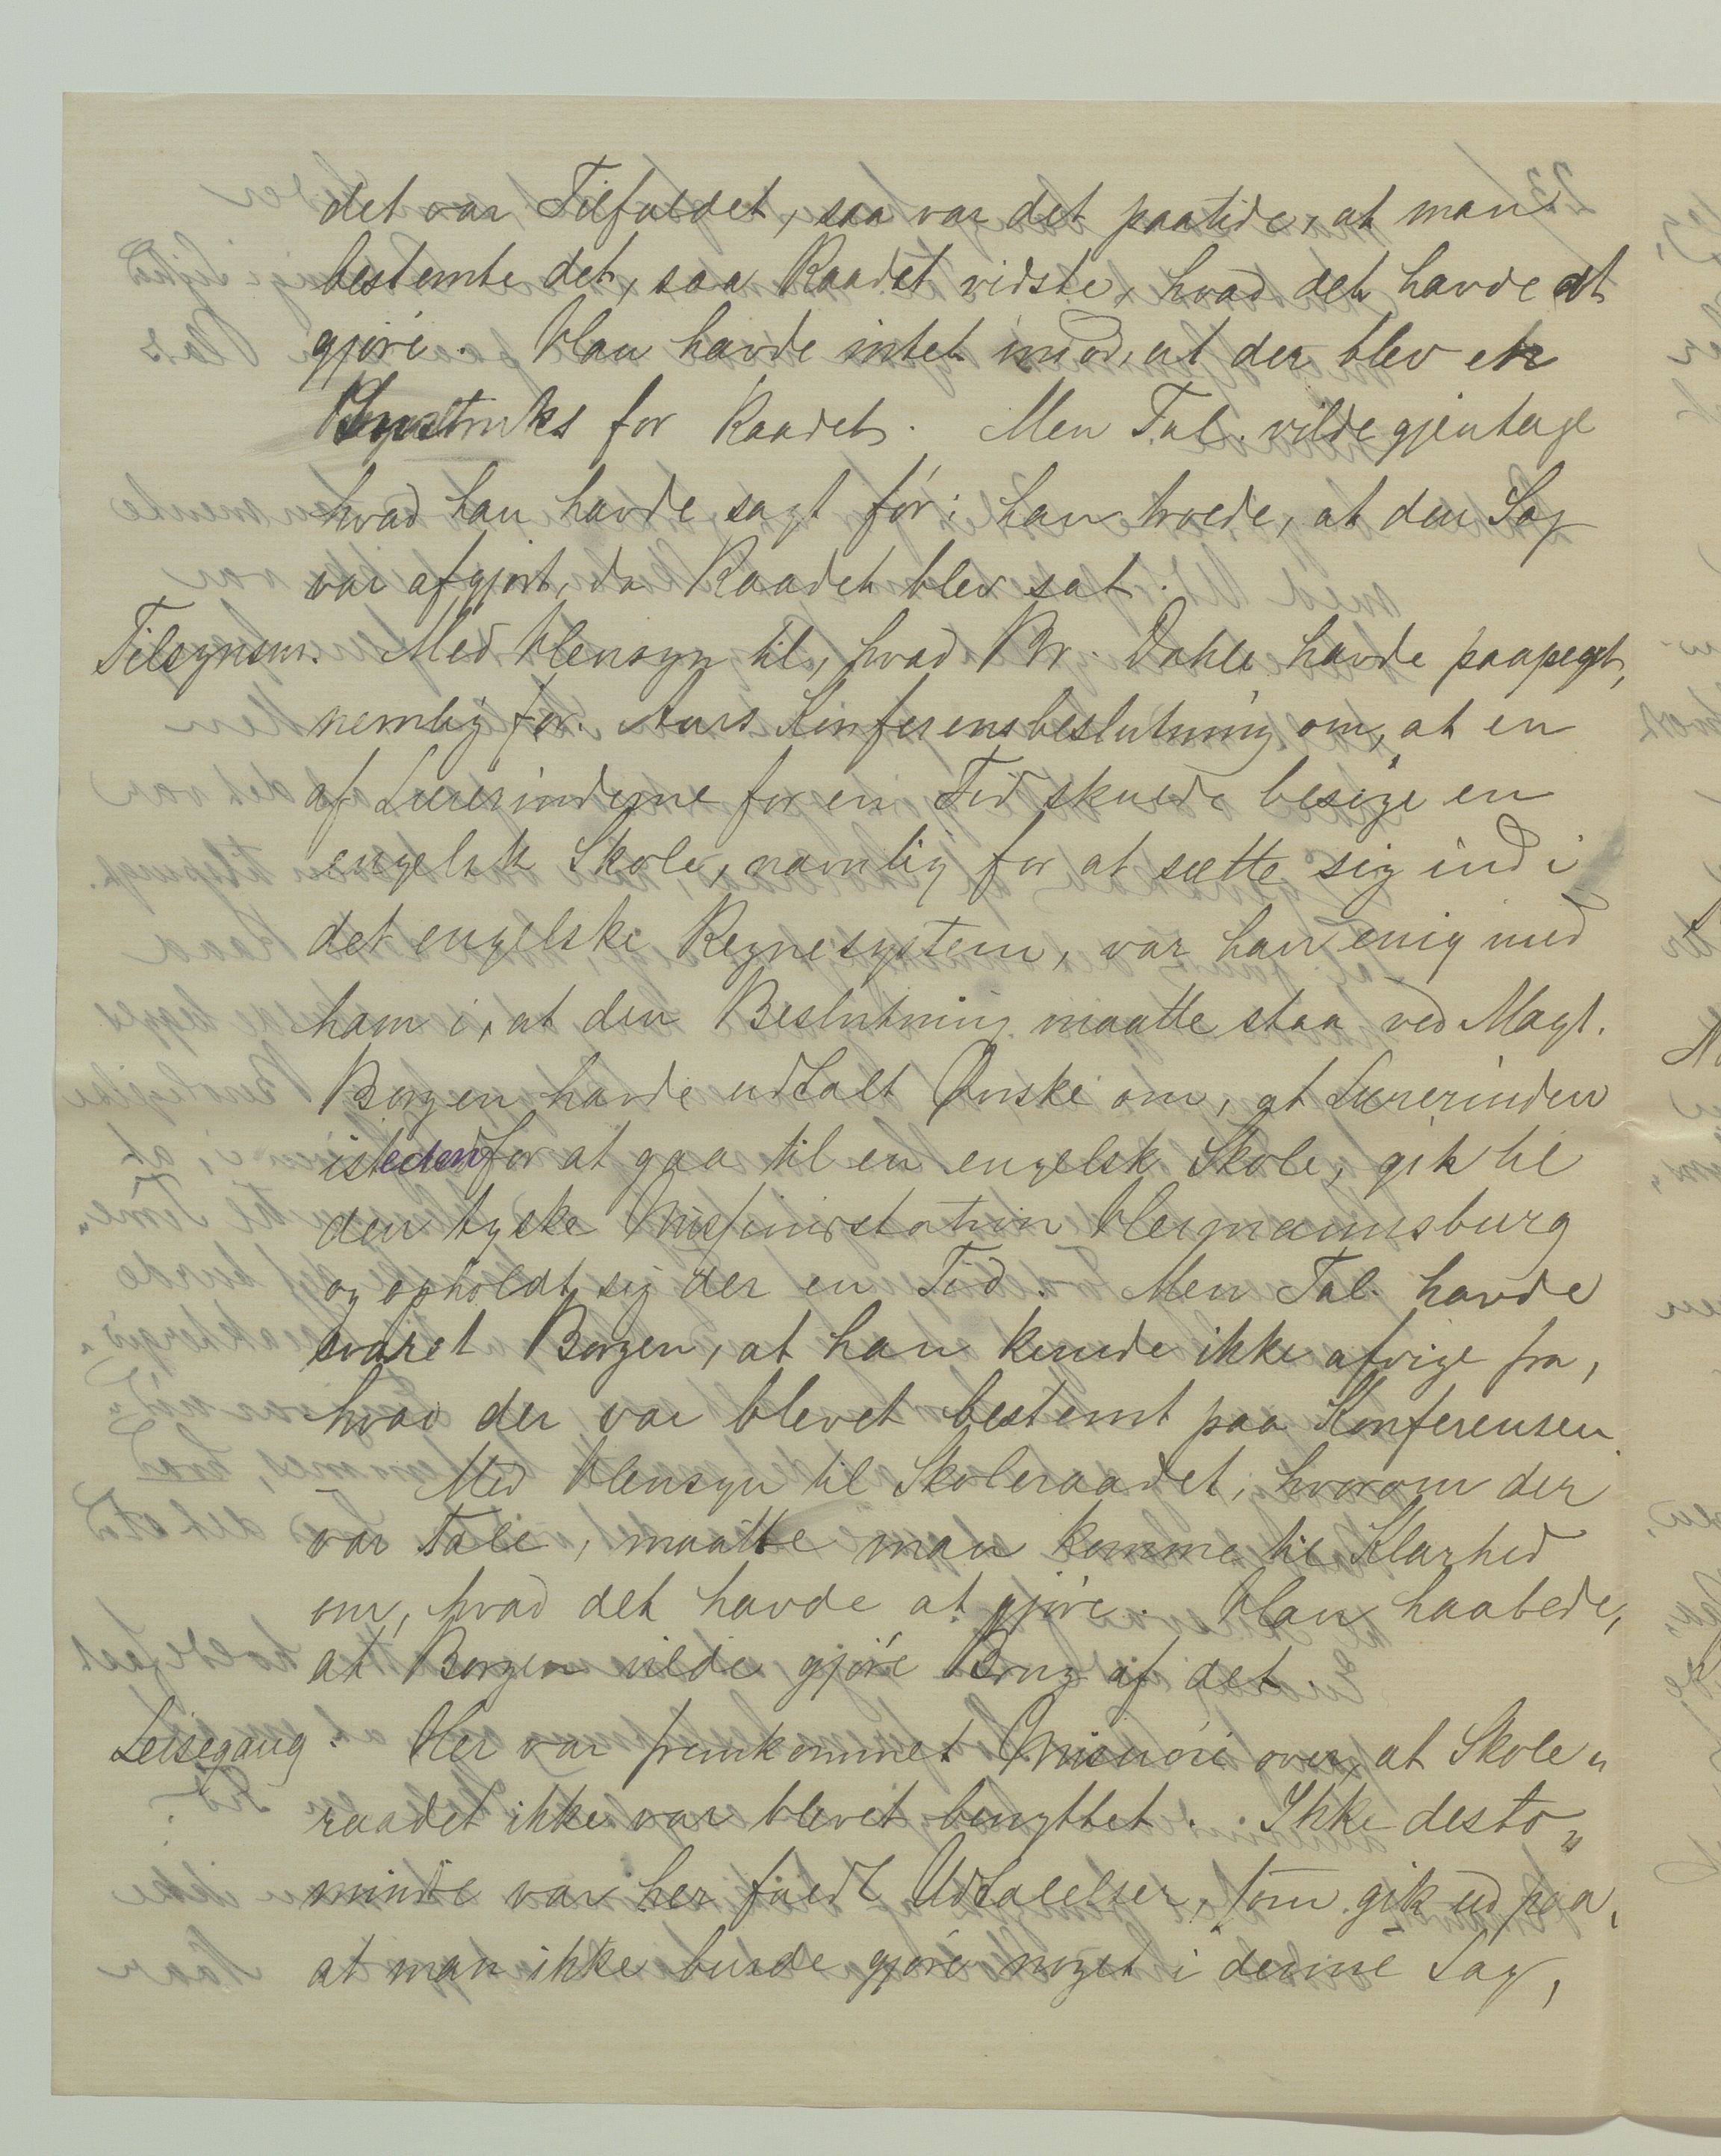 det var Tilfældet, saa var det paatide, at man
bestemte det, saa Raadet vidste, hvad det havde at
gjøre. Han havde intet imod, at der blev en
Instruks for Raadet. Men Tal. vilde gjentage
hvad han havde sagt før: han troede, at den Sag
var afgjort, da Raadet blev sat.
Tilsynsm. Med Hensyn til, hvad Br. Dahle havde paapeget,
nemlig for. Aars Konferensbeslutning om, at en
af Lærerinderne for en Tid skulde besøge en
engelsk Skole, navnlig for at sætte sig ind i
det engelske Regnesystem, var han enig med
ham i, at den Beslutning maatte staa ved Magt.
Borgen havde udtalt Ønske om, at Lærerinden
istedenfor at gaa til en engelsk Skole, gik til
den tyske Missionsstation Hermannsburg
og opholdt sig der en Tid. Men Tal. havde
svaret Borgen, at han kunde ikke afvige fra,
hvad der var blevet bestemt paa Konferensen.
– Med Hensyn til Skoleraadet, hvorom der
var Tale, maatte man komme til Klarhed
om, hvad det havde at gjøre. Han haabede,
at Borgen vilde gjøre Brug af det
Leisegang: Her var fremkommet Misnøie over, at Skole„
raadet ikke var blevet benyttet. Ikke desto„
mindre var her faldt Udtalelser, som gik ud paa,
at man ikke burde gjøre noget i denne Sag,